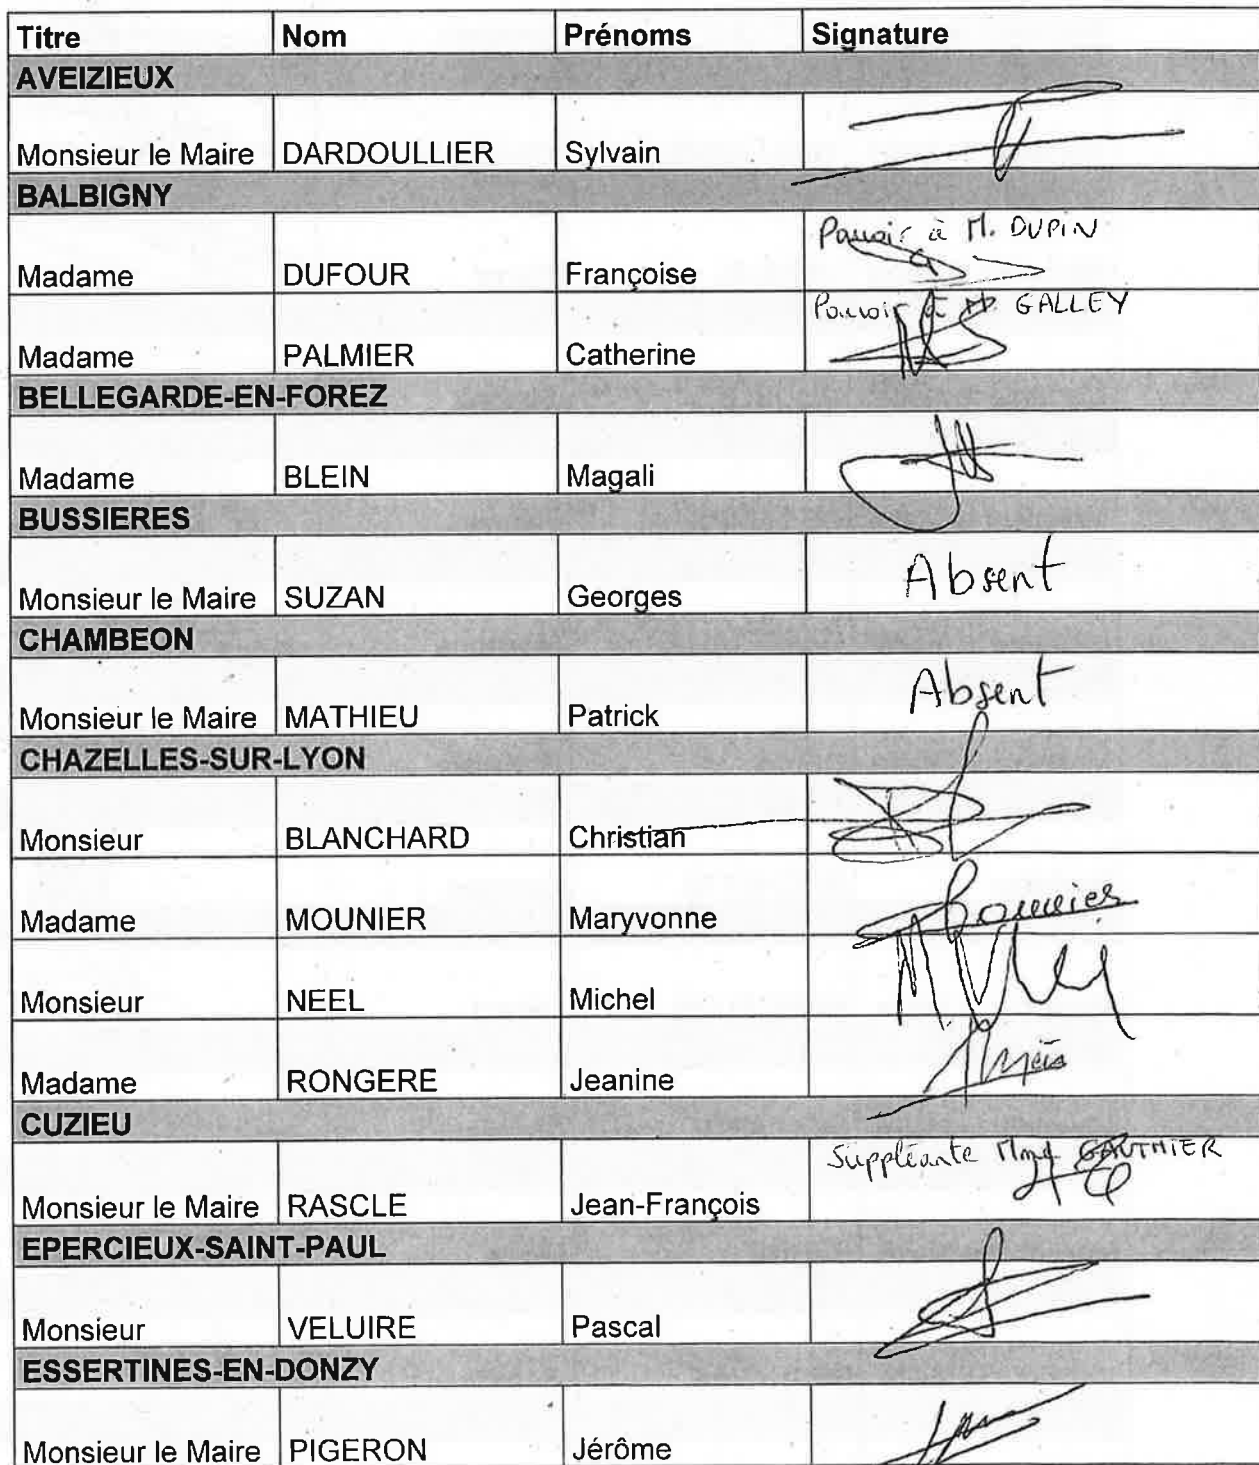 Titre Nom Prénoms Signature
AVEIZIEUX
Monsieur le Maire DARDOULLIER Sylvain
BALBIGNY
Pouvoir à M. DUPIN
Madame DUFOUR Françoise
Pouvoir à M. GALLEY
Madame PALMIER Catherine
BELLEGARDE-EN-FOREZ
Madame BLEIN Magali
BUSSIERES
Absent
Monsieur le Maire SUZAN Georges
CHAMBEON
Absent
Monsieur le Maire MATHIEU Patrick
CHAZELLES-SUR-LYON
Monsieur BLANCHARD Christian
Madame MOUNIER Maryvonne
Monsieur NEEL Michel
Madame RONGERE Jeanine
CUZIEU
Suppléante Mme GAUTHIER
Monsieur le Maire RASCLE Jean-François
EPERCIEUX-SAINT-PAUL
Monsieur VELUIRE Pascal
ESSERTINES-EN-DONZY
Monsieur le Maire PIGERON Jérôme